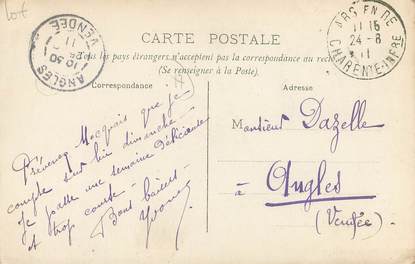 Lot
CARTE POSTALE
Tous les pays étrangers n'acceptent pas la correspondance au recto
(Se renseigner à la Poste)
Correspondance
Adresse
ARS EN RE
11 15
24-8
11
CHARENTE INFRE
ANGLES
VENDÉE
Prévenez Macquais que je
compte sur lui dimanche
Je passe une semaine délicieuse
et trop courte -
Bons baisers -
Yvonne
Monsieur Dazelle
à
Angles
(Vendée)